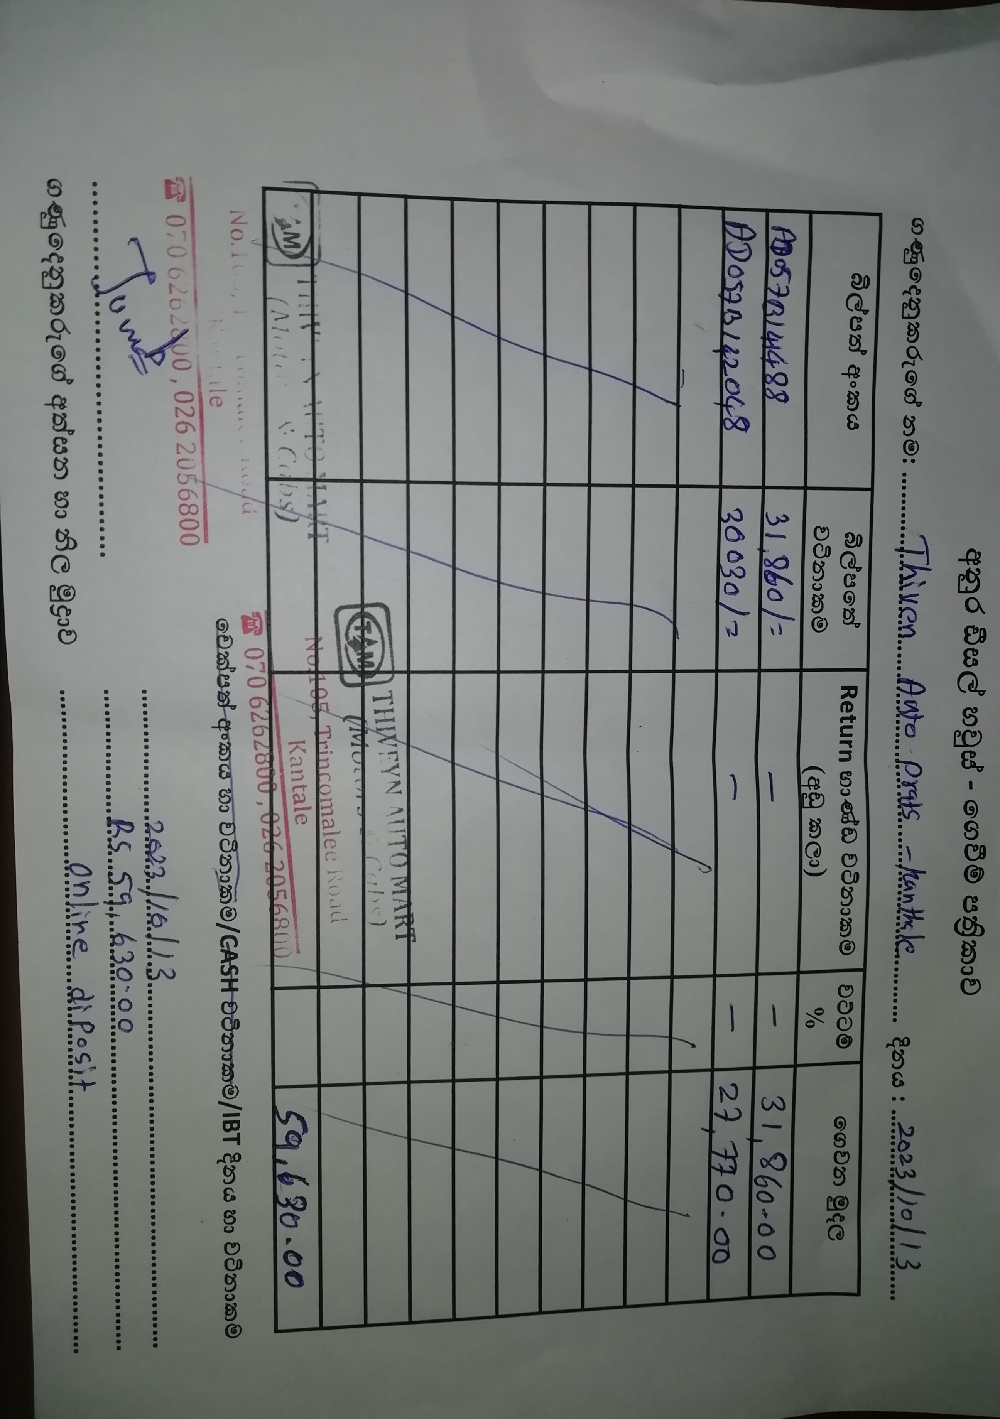 අනුර සියල් හවුස් - ගෙවීම් පත්‍රිකාව
ගණුදෙනුකරුගේ නම: Thiven Auto Prats - kanthale දිනය : 2023/10/13
බිල්පත් අංකය බිල්පතේ වටිනාකම Return භාණ්ඩ වටිනාකම (අඩු කලා) වට්ටම් % ගෙවන මුදල
AD057B144488 31,860/= – – 31,860.00
AD057B142048 30030/= – – 27,770.00
59,630.00
TAM THIVEYN AUTO MART
No.105, Trincomalee Road
Kantale
☎ 070 6262800 , 026 2056800
TAM AUTO MART
Kantale
☎ 070 6262800 , 026 2056800
චෙක්පත් අංකය හා වටිනාකම/CASH වටිනාකම/IBT දිනය හා වටිනාකම
2023/10/13
RS 59,630.00
Online diPosit
ගණුදෙනුකරුගේ අත්සන හා නිල මුද්‍රාව